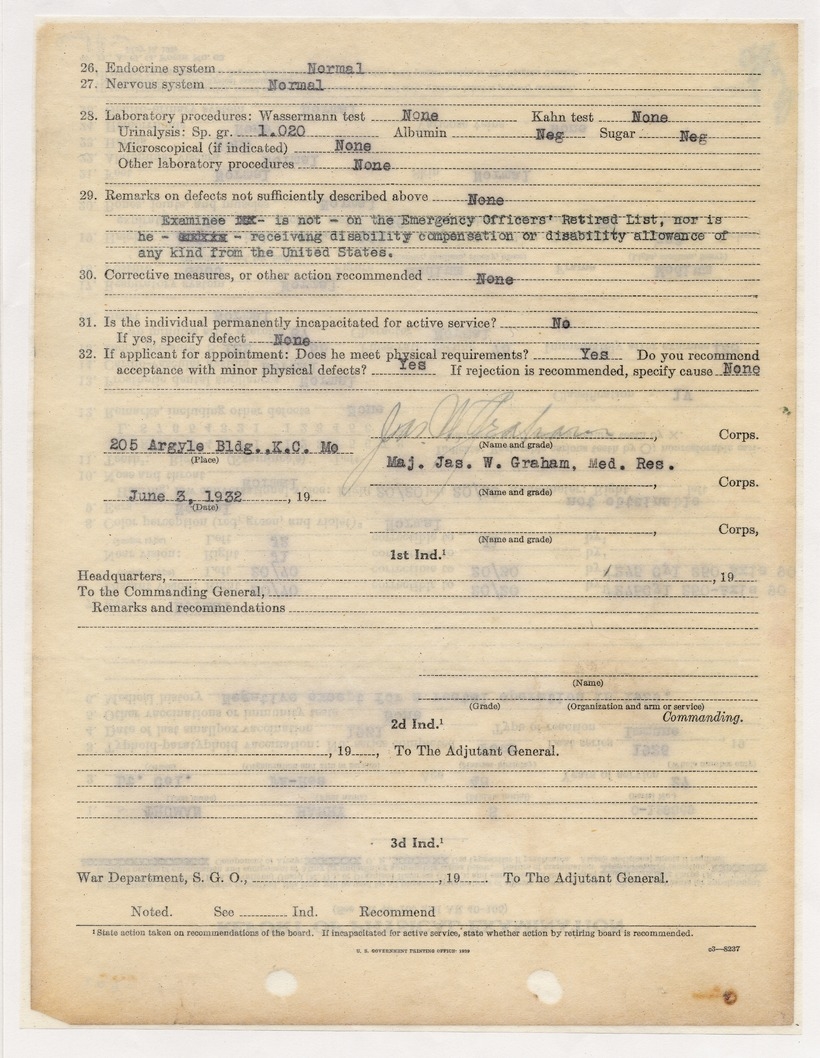 26. Endocrine system Normal
27. Nervous system Normal
28. Laboratory procedures: Wassermann test None Kahn test None
Urinalysis: Sp. gr. 1.020 Albumin Neg Sugar Neg
Microscopical (if indicated) None
Other laboratory procedures None
29. Remarks on defects not sufficiently described above None
Examinee - is not - on the Emergency Officers' Retired List, nor is
he - - receiving disability compensation or disability allowance of
any kind from the United States.
30. Corrective measures, or other action recommended None
31. Is the individual permanently incapacitated for active service? No
If yes, specify defect None
32. If applicant for appointment: Does he meet physical requirements? Yes Do you recommend
acceptance with minor physical defects? Yes If rejection is recommended, specify cause None
Jas W. Graham , Corps.
205 Argyle Bldg.,K.C. Mo (Name and grade)
(Place) Maj. Jas. W. Graham, Med. Res.
, Corps.
June 3, 1932 , 19 (Name and grade)
(Date)
, Corps,
(Name and grade)
1st Ind.¹
Headquarters, , 19
To the Commanding General,
Remarks and recommendations
(Name)
(Grade) (Organization and arm or service)
Commanding.
2d Ind.¹
, 19 , To The Adjutant General.
3d Ind.¹
War Department, S. G. O., , 19 To The Adjutant General.
Noted. See Ind. Recommend
¹ State action taken on recommendations of the board. If incapacitated for active service, state whether action by retiring board is recommended.
U. S. GOVERNMENT PRINTING OFFICE: 1929
c3—8237